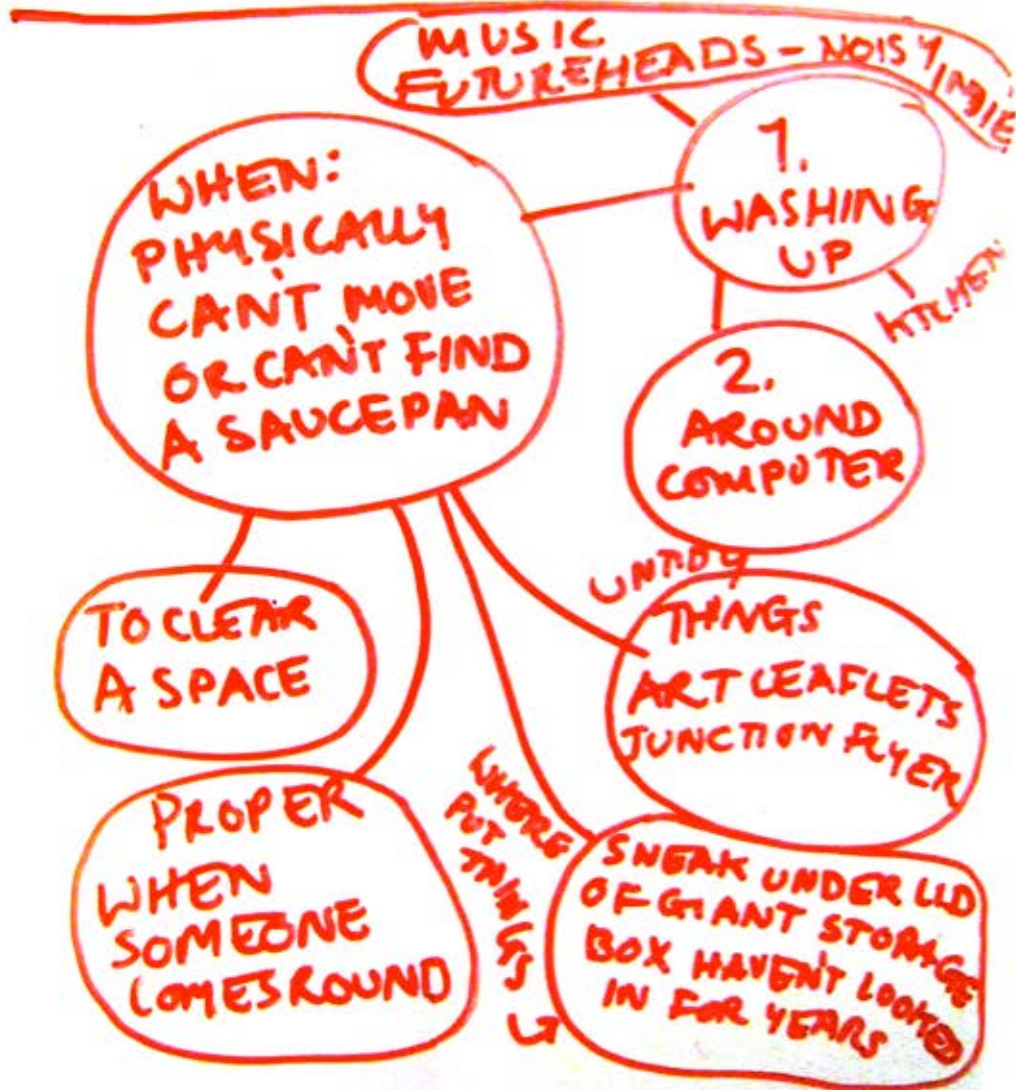 MUSIC
FUTUREHEADS - NOISY INDIE
WHEN:
PHYSICALLY
CAN'T MOVE
OR CAN'T FIND
A SAUCEPAN
1.
WASHING
UP
KITCHEN
2.
AROUND
COMPUTER
UNTIDY
THINGS
ART LEAFLETS
JUNCTION FLYER
TO CLEAR
A SPACE
PROPER
WHEN
SOMEONE
COMES ROUND
WHERE
PUT
THINGS
SNEAK UNDER LID
OF GIANT STORAGE
BOX HAVEN'T LOOKED
IN FOR YEARS